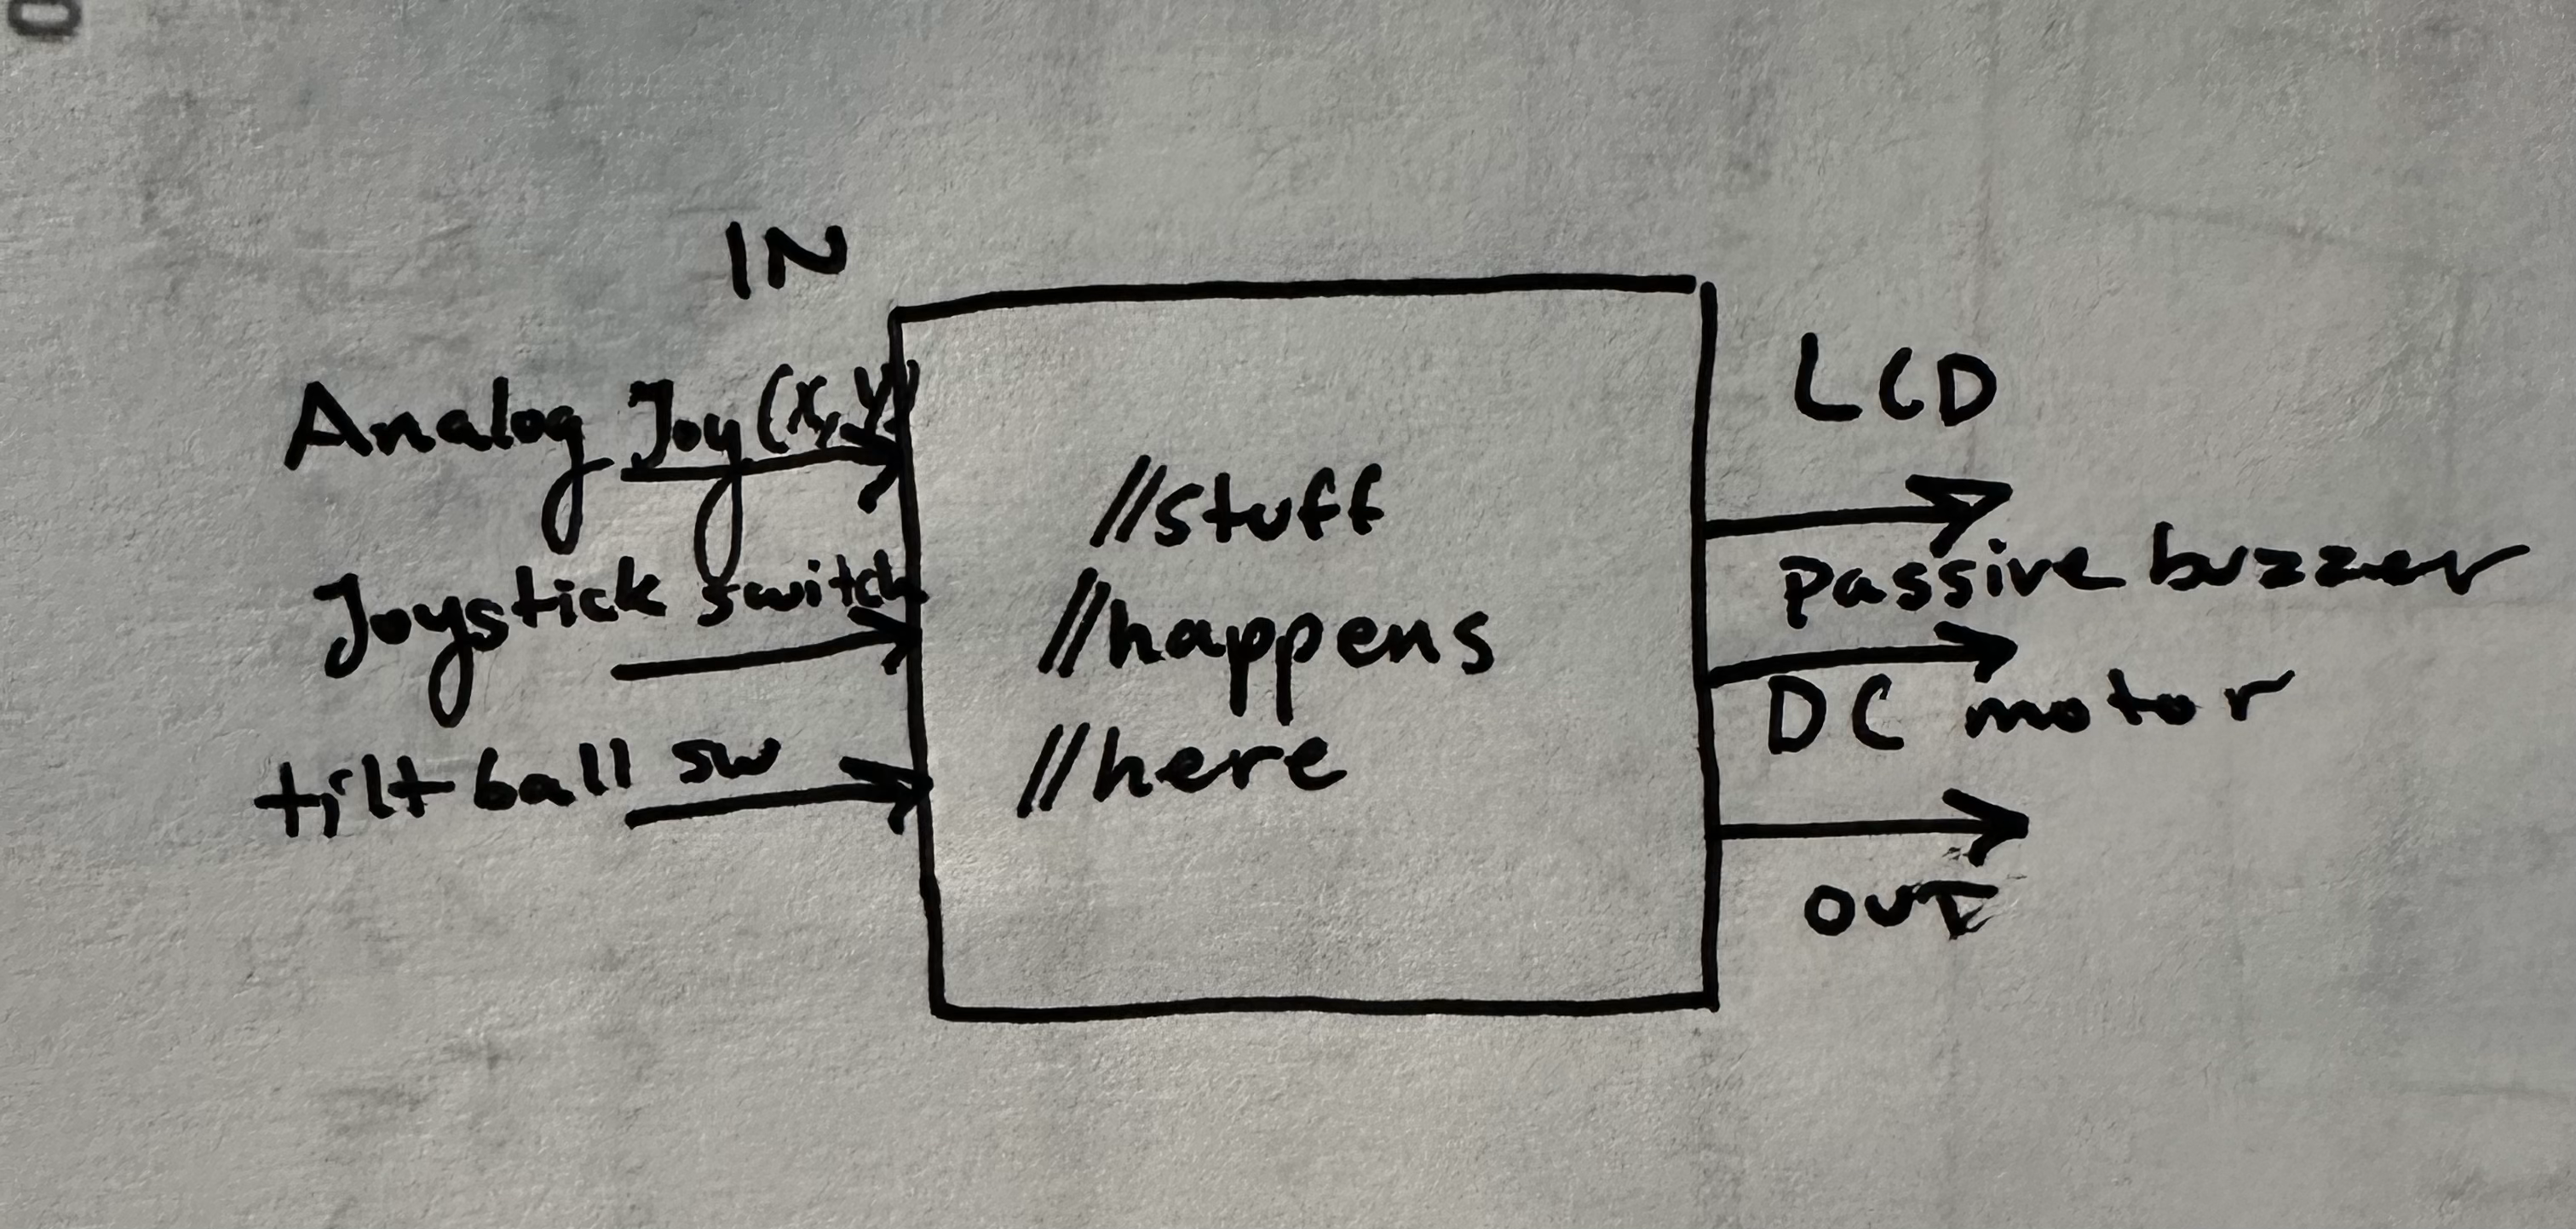 IN
Analog Joy(x,y)
Joystick switch
tilt ball sw
//stuff
//happens
//here
LCD
passive buzzer
DC motor
OUT